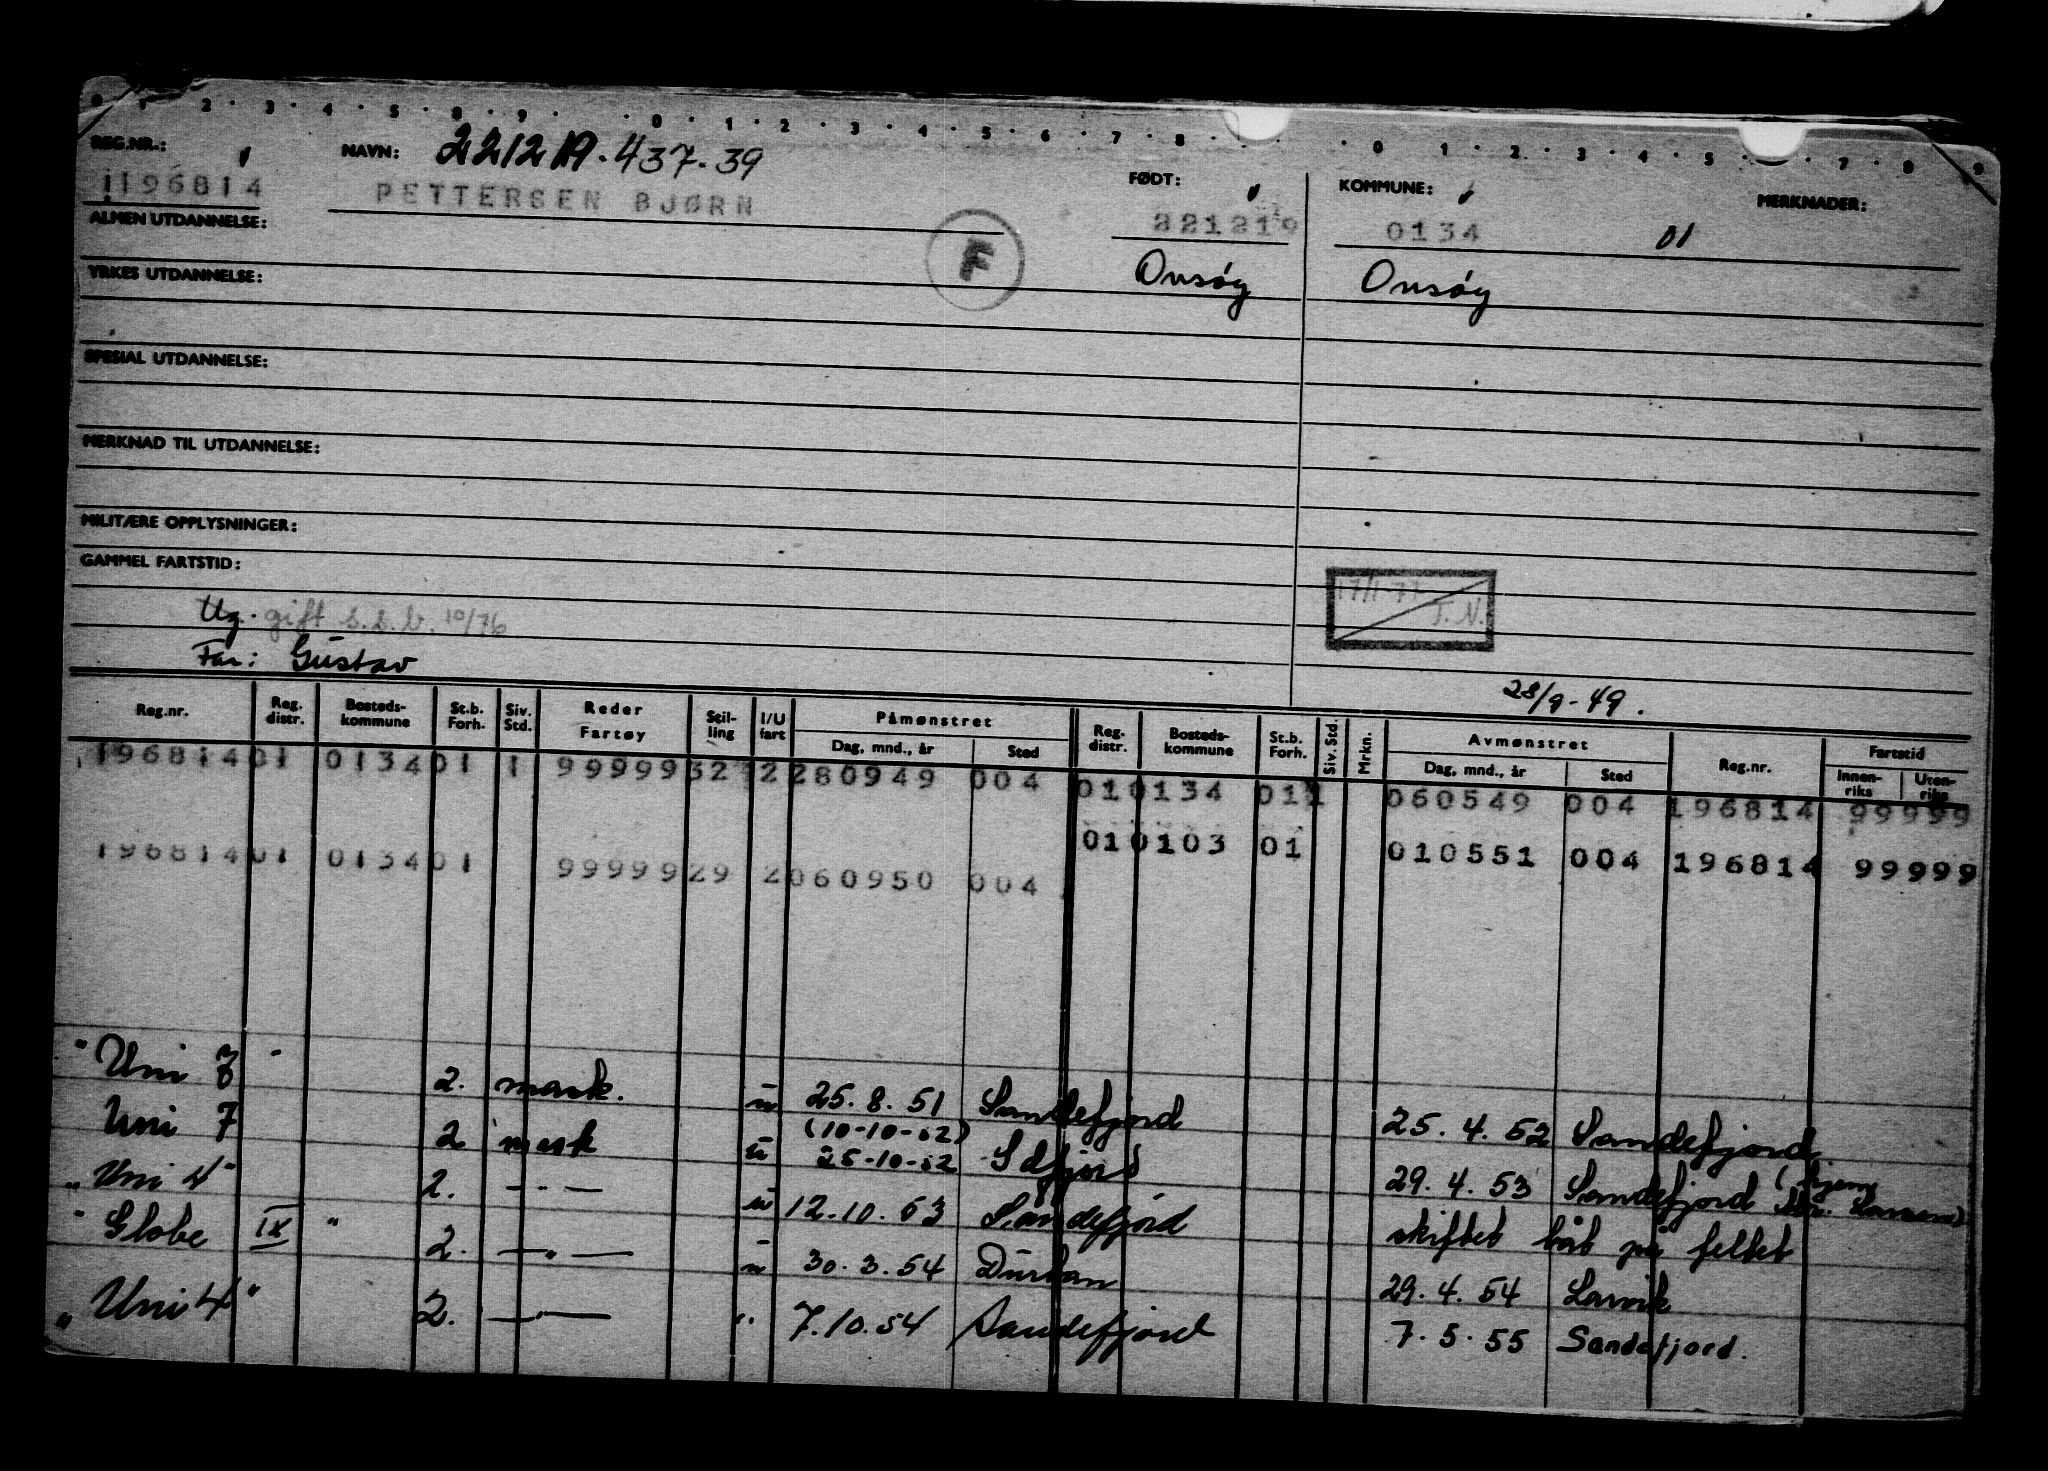 0 1 2 · 3 · 4 · 5 · 8 · 9 · · 0 · 1 · 2 · 3 · 4 · 5 · 6 · 7 · 8 · · · 0 · 1 · 2 · 3 · 4 · 5 · · 7 · 8 · 9
REG.NR.: NAVN: 221219.437-39 FØDT: KOMMUNE: MERKNADER:
196814 PETTERSEN BJØRN 221219 0134 01
ALMEN UTDANNELSE: F
Onsøy Onsøy
YRKES UTDANNELSE:
SPESIAL UTDANNELSE:
MERKNAD TIL UTDANNELSE:
MILITÆRE OPPLYSNINGER:
GAMMEL FARTSTID:
17/1-77 T.N.
Ug. gift s.s.b. 10/76
Far: Gustav
28/9-49.
Reg.nr. Reg. distr. Bosteds-kommune St.b. Forh. Siv. Std. Reder Fartøy Stil-ling I/U fart Påmønstret Dag, mnd., år Sted Reg. distr. Bosteds-kommune St.b. Forh. Siv. Std. Mrkn. Avmønstret Dag, mnd., år Sted Reg.nr. Fartstid Innen-riks Uten-riks
196814 01 0134 01 1 99999 32 2 280949 004 01 0134 01 1 060549 004 196814 99999
01 0103 01 010551 004 196814 99999
196814 01 0134 01 99999 29 2 060950 004
" Uni 7 " 2. mask. u 25.8.51 Sandefjord 25.4.52 Sandefjord
(10-10-52)
Uni 7 2 mask u 25-10-52 Sdfjord 29.4.53 Sandefjord (hjem
„ Uni 4" 2. —"— u 12.10.53 Sandefjord skiftet båt på feltet
" Globe IX " 2. —"— u 30.3.54 Durban 29.4.54 Larvik
„ Uni 4 " 2. —"— " 7.10.54 Sandefjord 7.5.55 Sandefjord.